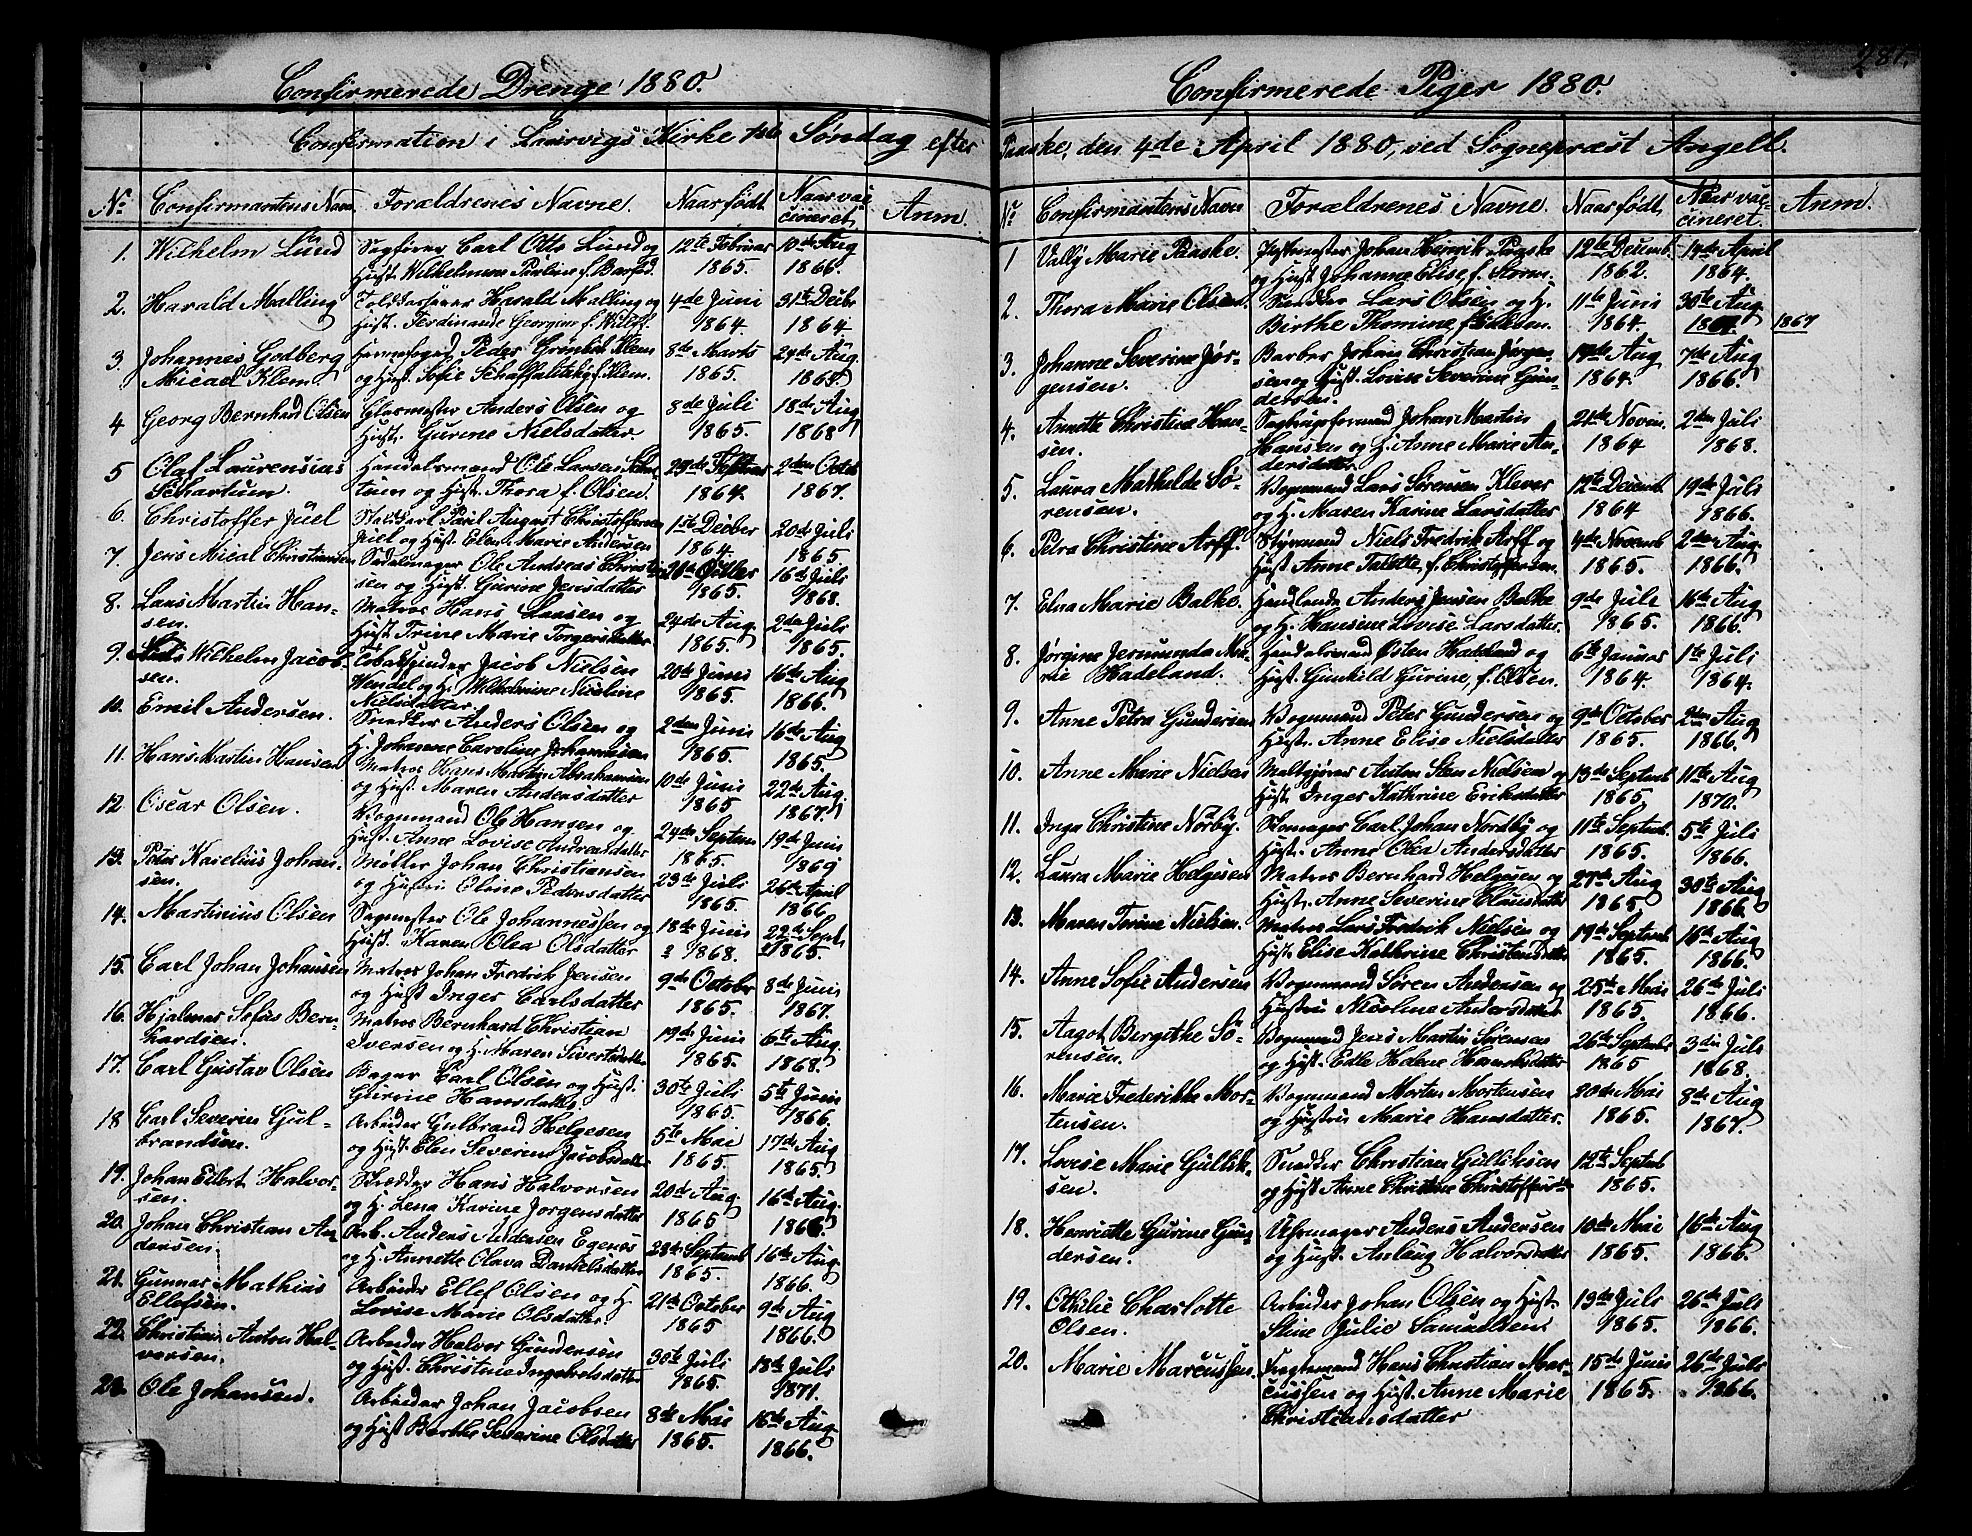 281.
Confirmerede Drenge 1880.
Confirmation i Laurvigs Kirke 1ste Søndag efter
No Confirmantens Navn. Forældrenes Navne. Naar født. Naar vac-
cineret. Anm.
1. Wilhelm Lund Sagfører Carl Otto Lund og 12te Februar 10de Aug
Hust. Wilhelmine Pauline f. Barfod. 1865. 1866.
2. Harald Malling Toldkasserer Harald Malling og 4de Juni 31te Decbr
Hust. Ferdinande Georgine f. 1864. 1864.
3. Johannes Godberg Peder Grønbek Klem 8de Marts 24de Aug.
Micael Klem og Hust. Sofie Schaffalitsky f. Klem. 1865. 1865.
4 Georg Bernhard Olsen Glasmester Anders Olsen og 8de Juli 18de Aug
Hust. Gurine Nielsdatter. 1865. 1868
5 Olaf Laurensius Handelsmand Ole Larsen Schar- 29de Februar 2den Octob
Schartum. tum og Hust. Thora f. Olsen. 1864. 1867.
6. Christoffer Juel Staldkarl Paul August Christoffersen 1ste Decber 20de Juli
Juel og Hust. Elen Marie Andersen 1864. 1865.
7. Jens Micael Christiansen Sadelmager Ole Andreas Christian- 26de Octber 16de Juli
sen og Hust. Gurine Jensdatter 1865. 1868.
8. Lars Martin Han- Matros Hans Larsen og 24de Aug. 2den Juli
sen. Hust. Trine Marie Torgersdatter 1865. 1865.
9. Niels Wilhelm Jacob- Tobakspinder Jacob Nielsen 20de Juni 16de Aug
sen. Wendel og H. Wilhelmine Nicoline 1865. 1866.
Nielsdatter
10. Emil Andersen. Snedker Anders Olsen og 2den Juni 16de Aug
H. Johanne Caroline Johannesen 1865. 1865.
11. Hans Martin Hansen Matros Hans Martin Abrahamsen 10de Juni 22de Aug.
og Hust. Maren Andersdatter 1865 1867.
12 Oscar Olsen. Vognmand Ole Hansen og 24de Septem 19de Juni
Hust. Anne Lovise Andreasdatter 1865. 1869
13. Peter Karelius Johan- Møller Johan Christiansen 23de Juli 26de April
sen. og Hustru Oline Pedersdatter 1865. 1866.
14. Martinius Olsen Sagmester Ole Johannessen og 18de Juni 22de Sept.
Hust. Karen Olea Olsdatter 1868. 1865.
15. Carl Johan Johansen Matros Johan Fredrik Jensen 9de October 8de Juni
og Hust Inger Carlsdatter 1865. 1867.
16. Hjalmar Sefus Bern- Matros Bernhard Christian 19de Juni 6te Aug.
hardsen. Iversen og H. Maren Sivertsdatter 1865. 1868.
17. Carl Gustav Olsen Bager Carl Olsen og Hust. 30te Juli 5te Juni
Gurine Hansdatter. 1865. 1866.
18 Carl Severin Gul- Arbeider Gulbrand Helgesen 5te Mai 17de Aug
brandsen. og Hust. Elen Severine Jacobsdatter 1865. 1865.
19. Johan Eilert Halvor- Skrædder Hans Halvorsen 20de Aug. 16de Aug.
sen. og H. Lena Karine Jørgensdatter 1865 1866.
20. Johan Christian An- Arb. Anders Andersen Egenes 28de Septemb 16de Aug.
dersen. og H. Annette Olava Danielsdatter 1865. 1866.
21. Gunnar Mathias Arbeider Ellef Olsen og H. 21de October 9de Aug
Ellefsen. Lovise Marie Olsdatter 1865 1866.
22. Christian Anton Hal- Arbeider Halvor Gundersen 30te Juli 18de Juli
versen. og Hust. Christine Ingebretsdatter 1865. 1871.
23. Ole Johansen. Arbeider Johan Jacobsen 8de Mai 16de Aug
og Hust Berthe Severine Olsdatter 1865. 1866.
Confirmerede Piger 1880.
Paaske, den 4de April 1880, ved Sognepræst Angell.
No Confirmantens Navn Forældrenes Navne. Naar født, Naar vac-
cineret. Anm.
1 Vally Marie Paaske. Johan Henrik Paaske 12te Decemb. 14de April
og Hust Johanne Elise f. Storm. 1862. 1864.
2. Thora Marie Olsen. Snedker Lars Olsen og H. 11te Juni 30te Aug
Birthe Thomine, 1864. 1867 1867
3. Johanne Severine Jør- Barber Johan Christian Jørgen- 14de Aug 7de Aug
gensen. sen og Hust. Lovise Severine Gun- 1864. 1866.
dersen.
4. Annette Christine Han- Johan Martin 21de Novem. 2den Juli
sen. Hansen og H. Anne Marie An- 1864 1868.
dersdatter
5. Laura Mathilde Sø- Vognmand Lars Sørensen Klever 12te Decemb. 19de Juli
rensen. og H. Maren Karine Larsdatter 1864 1866.
6. Petra Christine Arff. Styrmand Niels Fredrik Arff og 4de Novemb 2den Aug.
Hust Anne Talette, f. Christoffersen. 1865. 1866.
7. Elna Marie Balke. Handlende Anders Jensen Balke 9de Juli 16de Aug
og H. Hansine Lovise Larsdatter. 1865. 1866.
8. Jørgine Jermunda Ma- Handelsmand Østen Hadeland og 6te Januar 1ste Juli
rie Hadeland. Hust. Gunhild Gurine, f. Olsen. 1864. 1864.
9. Anne Petra Gundersen Vognmand Peter Gundersen og 9de October 2den Aug
Hust. Anne Elise Nielsdatter 1865. 1866.
10. Anne Marie Nielsen Maltgjører Anton Sten Nielsen og 13de Septemb 11te Aug
Hust. Inger Kathrine Eriksdatter 1865. 1870.
11. Inga Christine Nørby. Skomager Carl Johan Nordby og 11te Septemb. 5te Juli
Hust. Anne Olea Andersdatter 1865. 1866.
12. Laura Marie Helgesen Matros Bernhard Helgesen og 27de Aug 30te Aug
Hust. Anne Severine Clausdatter 1865. 1866.
13. Maren Torine Nielsen. Matros Lars Fredrik Nielsen og 19de Septemb 16de Aug
Hust. Elise Kathrine Christiansdatter 1865. 1866.
14. Anne Sofie Andersen Vognmand Søren Andersen og 25de Mai 26de Juli
Hustru Nicoline Andersdatter 1865. 1866.
15. Aagot Bergithe Sø- Vognmand Jens Martin Sørensen 26de Septemb 3die Juli
rensen. og Hust. Edle Halene Henriksdatter 1865 1868.
16. Marie Frederikke Mor- Vognmand Morten Mortensen 20de Mai 8de Aug
tensen. og Hustru Marie Hansdatter. 1865. 1867.
17. Lovise Marie Gullik- Snedker Christian Gulliksen 12te Septemb
sen. og Hust Anne Christine 1865.
18. Henriette Gurine Gun- Uhrmager Anders Andersen 10de Mai 16de Aug
dersen. og Hust. Anlaug Halvorsdatter 1865. 1866.
19. Othilie Charlotte Arbeider Johan Olsen og Hust. 13de Juli 26de Juli
Olsen. Stine Julie Samuelsen. 1865. 1866.
20. Marie Marcussen. Fragtemand Hans Christian Mar- 15de Juni 26de Juli
cussen og Hust. Anne Marie 1865. 1866.
Christiansdatter